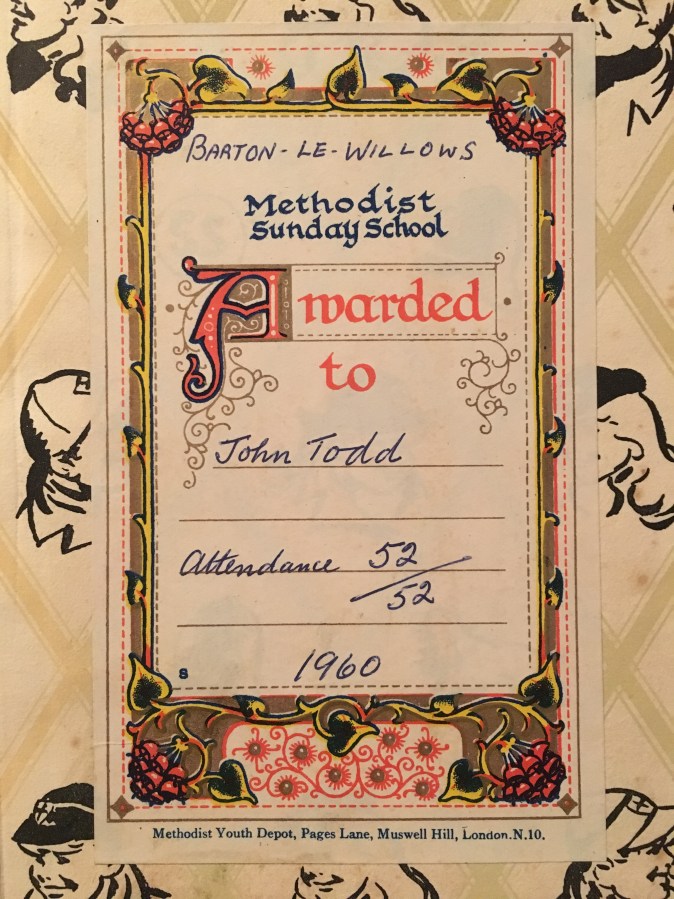 BARTON-LE-WILLOWS
Methodist
Sunday School
Awarded
to
John Todd
Attendance 52/52
S
1960
Methodist Youth Depot, Pages Lane, Muswell Hill, London.N.10.